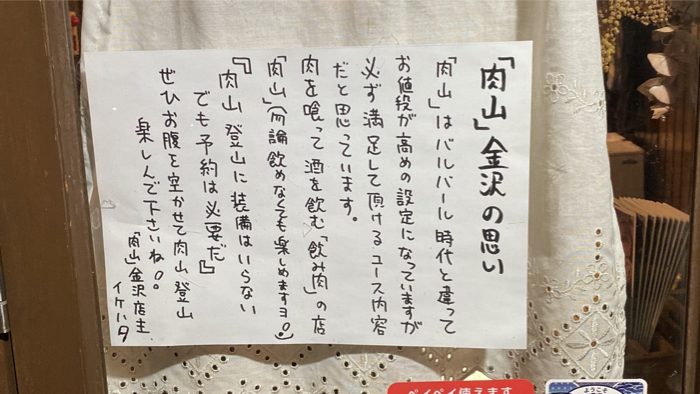 「肉山」金沢の思い
「肉山」はバルバール時代と違って
お値段が高めの設定になっていますが
必ず満足して頂けるコース内容
だと思っています。
肉を喰って酒を飲む「飲み肉」の店
「肉山」(勿論飲めなくても楽しめますヨ!)
『肉山登山に装備はいらない
でも予約は必要だ』
ぜひお腹を空かせて肉山登山
楽しんで下さいね!。
「肉山」金沢店主
イケハタ
ペイペイ使えます
ようこそ